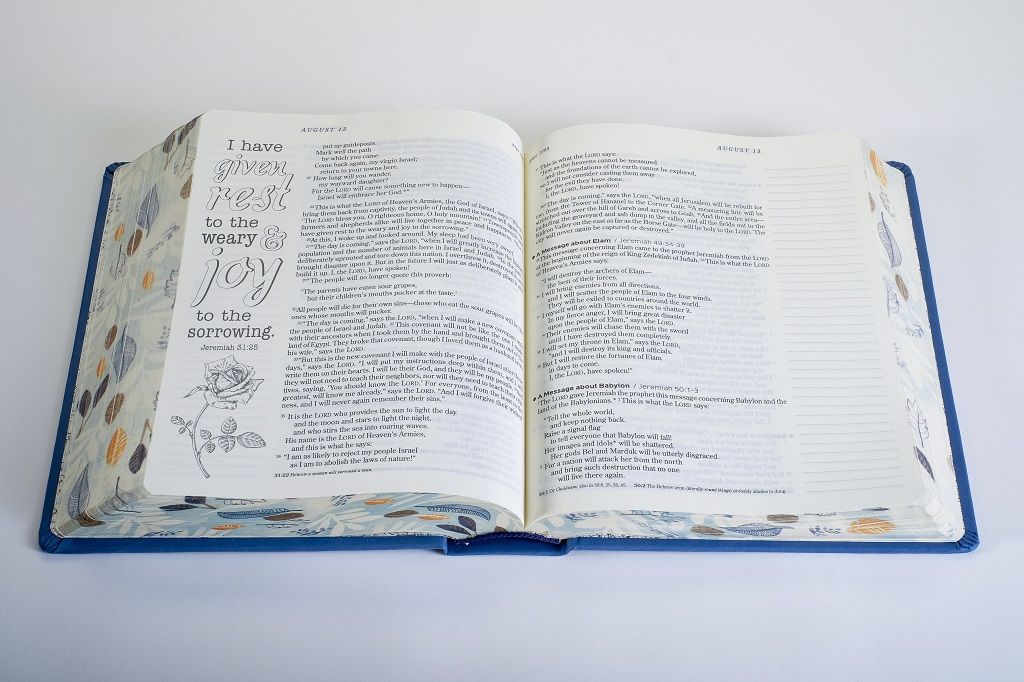 AUGUST 13
I have
given
rest
to the
weary &
joy
to the
sorrowing.
Jeremiah 31:25
put up guideposts.
Mark well the path
by which you came.
Come back again, my virgin Israel;
return to your towns here.
22 How long will you wander,
my wayward daughter?
For the LORD will cause something new to happen—
Israel will embrace her God.”*
23 This is what the LORD of Heaven’s Armies, the God of Israel, says:
bring them back from captivity, the people of Judah and its towns
‘The LORD bless you, O righteous home, O holy mountain!’
farmers and shepherds alike will live together in peace and happiness.
have given rest to the weary and joy to the sorrowing.”
26 At this, I woke up and looked around. My sleep had been very
27 “The day is coming,” says the LORD, “when I will greatly increase the
population and the number of animals here in Israel and Judah.
deliberately uprooted and tore down this nation. I overthrew it, destroyed it,
brought disaster upon it. But in the future I will just as deliberately plant it
build it up. I, the LORD, have spoken!
29 “The people will no longer quote this proverb:
‘The parents have eaten sour grapes,
but their children’s mouths pucker at the taste.’
30 All people will die for their own sins—those who eat the sour grapes will be
ones whose mouths will pucker.
31 “The day is coming,” says the LORD, “when I will make a new covenant
the people of Israel and Judah. 32 This covenant will not be like the one
with their ancestors when I took them by the hand and brought them out of the
land of Egypt. They broke that covenant, though I loved them as a husband
his wife,” says the LORD.
33 “But this is the new covenant I will make with the people of Israel after those
days,” says the LORD. “I will put my instructions deep within them, and I will
write them on their hearts. I will be their God, and they will be my people.
they will not need to teach their neighbors, nor will they need to teach their
lives, saying, ‘You should know the LORD.’ For everyone, from the least to the
greatest, will know me already,” says the LORD. “And I will forgive their
ness, and I will never again remember their sins.”
35 It is the LORD who provides the sun to light the day
and the moon and stars to light the night,
and who stirs the sea into roaring waves.
His name is the LORD of Heaven’s Armies,
and this is what he says:
36 “I am as likely to reject my people Israel
as I am to abolish the laws of nature!”
31:22 Hebrew a woman will surround a man.
AUGUST 13
37 This is what the LORD says:
“Just as the heavens cannot be measured
and the foundations of the earth cannot be explored,
so I will not consider casting them away
for the evil they have done.
I, the LORD, have spoken!
38 “The day is coming,” says the LORD, “when all Jerusalem will be rebuilt for
me, from the Tower of Hananel to the Corner Gate. 39 A measuring line will be
stretched out over the hill of Gareb and across to Goah. 40 And the entire area—
including the graveyard and ash dump in the valley, and all the fields out to the
Kidron Valley on the east as far as the Horse Gate—will be holy to the LORD. The
city will never again be captured or destroyed.”
A Message about Elam / Jeremiah 49:34-39
34 This message concerning Elam came to the prophet Jeremiah from the LORD
at the beginning of the reign of King Zedekiah of Judah. 35 This is what the LORD
of Heaven’s Armies says:
“I will destroy the archers of Elam—
the best of their forces.
36 I will bring enemies from all directions,
and I will scatter the people of Elam to the four winds.
They will be exiled to countries around the world.
37 I myself will go with Elam’s enemies to shatter it.
In my fierce anger, I will bring great disaster
upon the people of Elam,” says the LORD.
“Their enemies will chase them with the sword
until I have destroyed them completely.
38 I will set my throne in Elam,” says the LORD,
“and I will destroy its king and officials.
39 But I will restore the fortunes of Elam
in days to come.
I, the LORD, have spoken!”
A Message about Babylon / Jeremiah 50:1-3
1 The LORD gave Jeremiah the prophet this message concerning Babylon and the
land of the Babylonians.* 2 This is what the LORD says:
“Tell the whole world,
and keep nothing back.
Raise a signal flag
to tell everyone that Babylon will fall!
Her images and idols* will be shattered.
Her gods Bel and Marduk will be utterly disgraced.
3 For a nation will attack her from the north
and bring such destruction that no one
will live there again.
50:1 Or Chaldeans; also in 50:8, 25, 35, 45. 50:2 The Hebrew term (literally round things) probably alludes to dung.